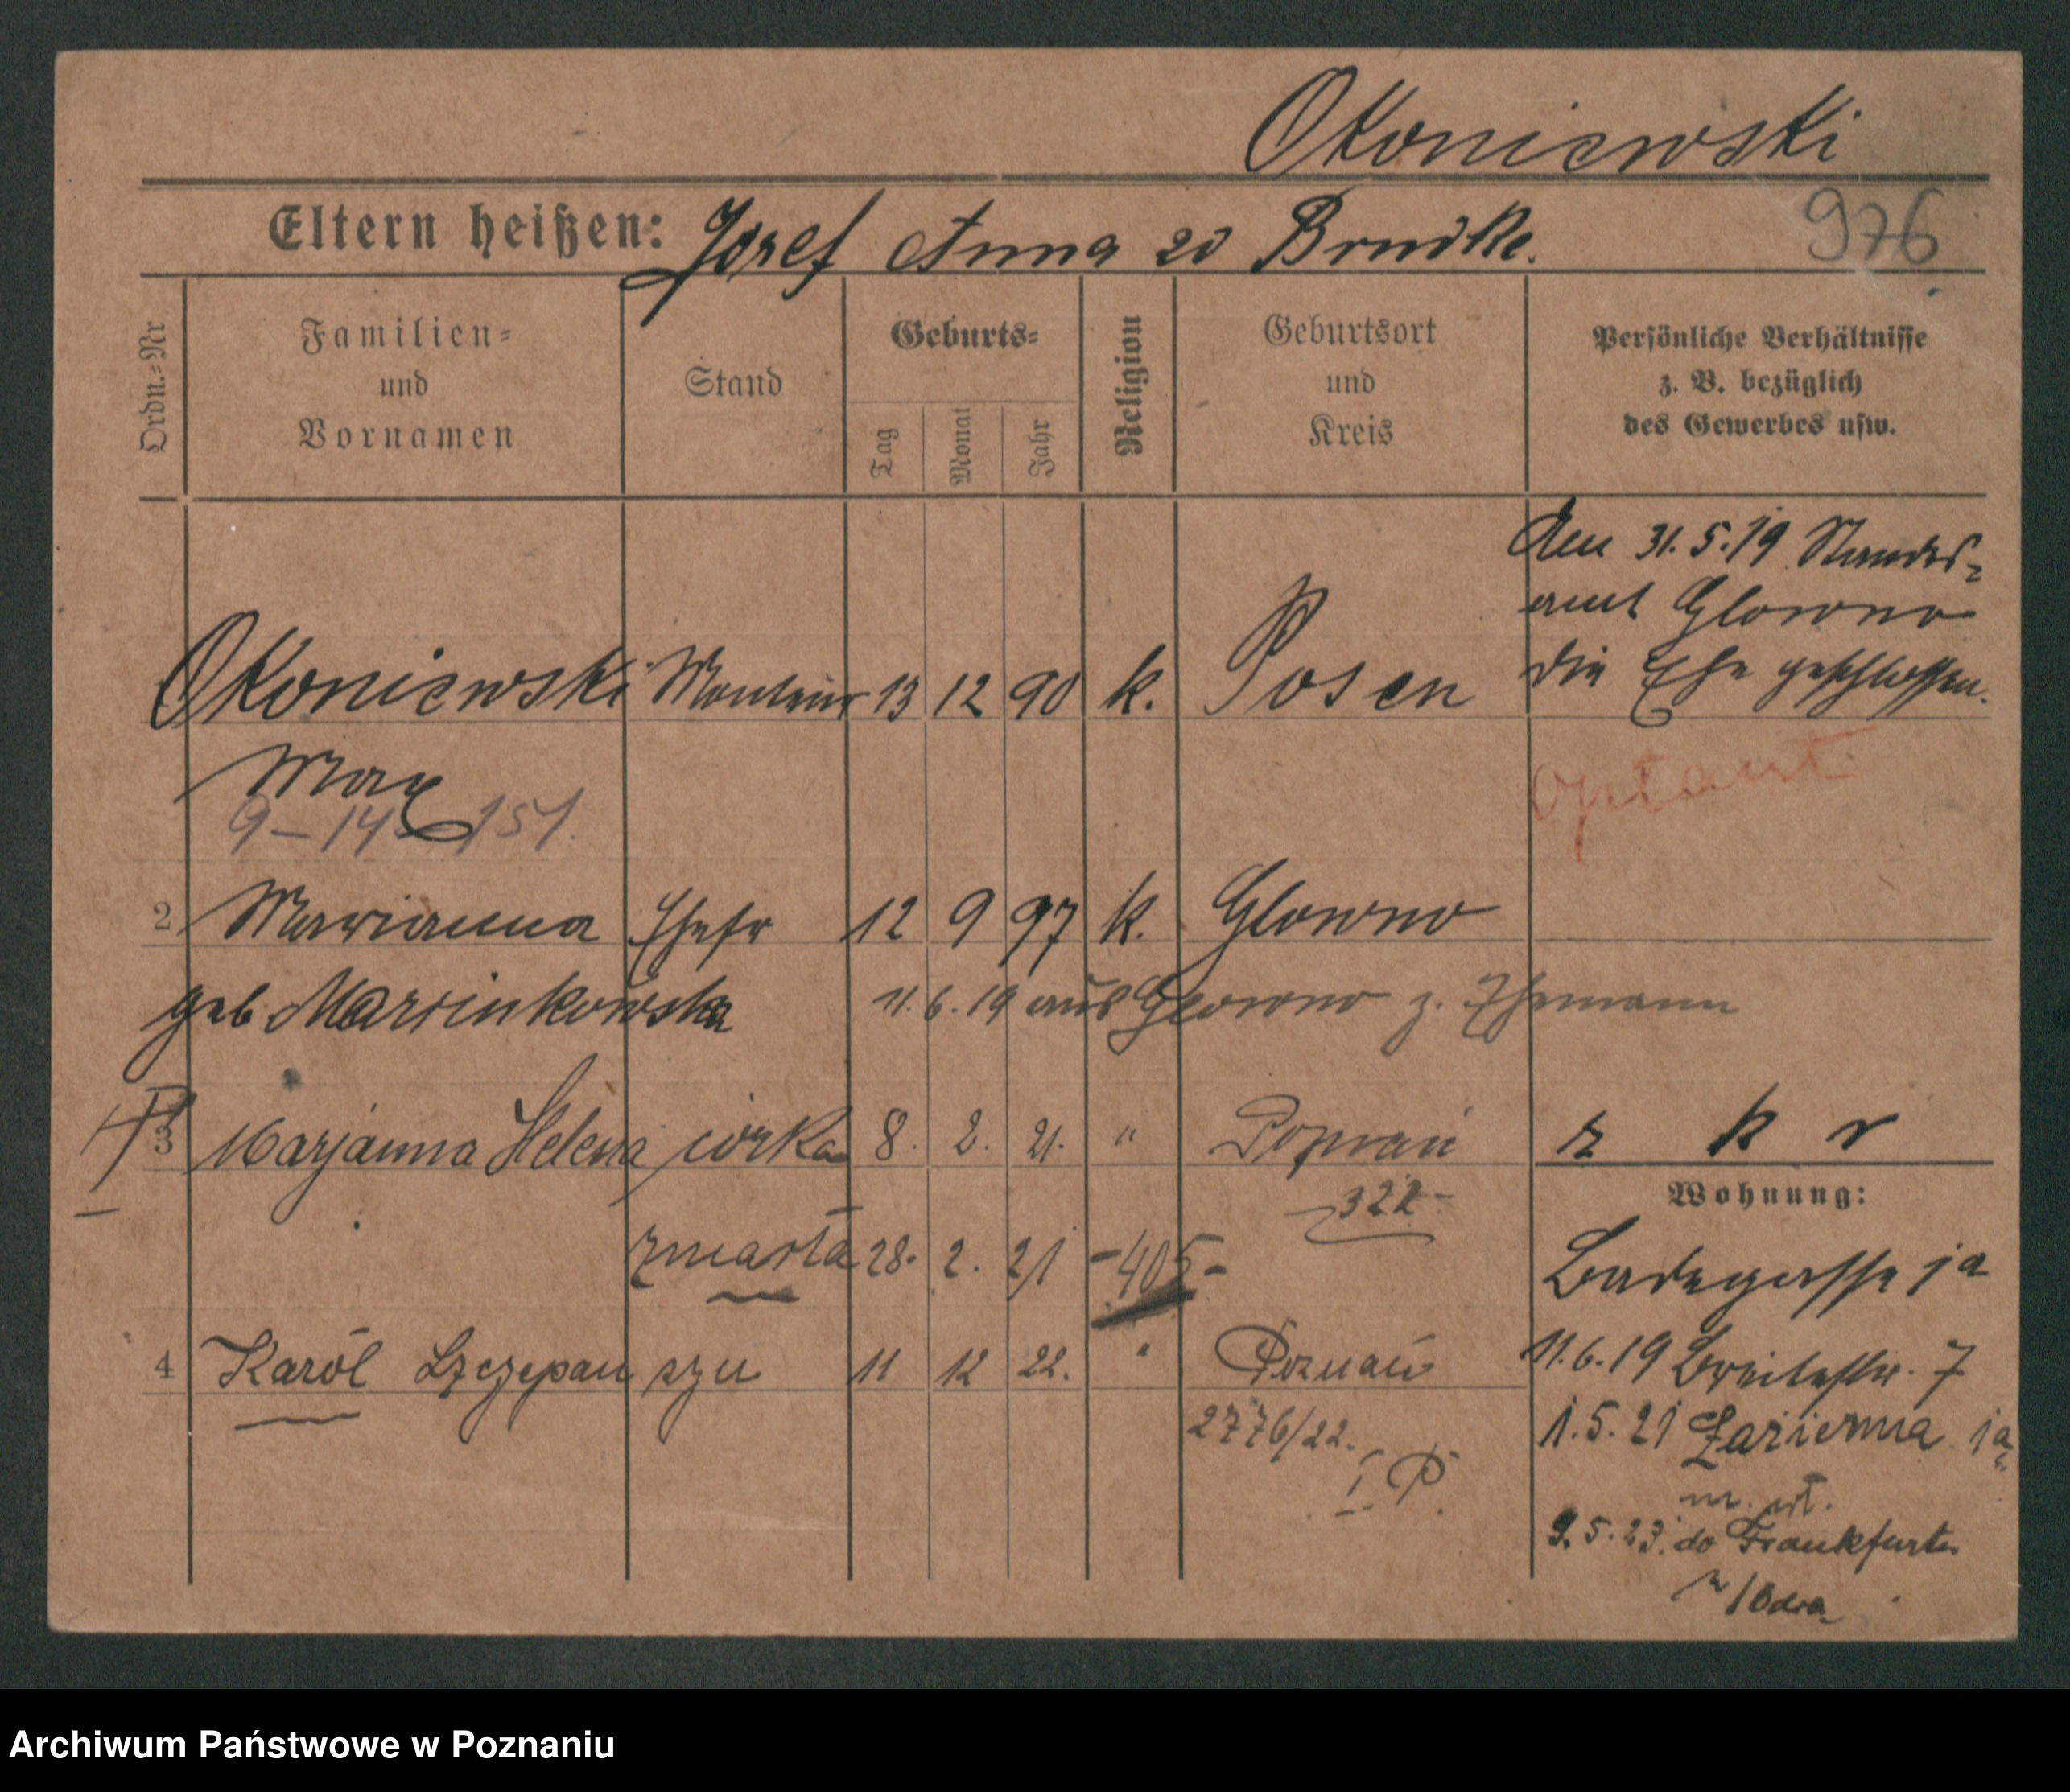 Okoniewski
Eltern heißen: Jozef Anna zd Brudke.
976
Ordn.=Nr
Familien=
und
Vornamen
Stand
Geburts=
Tag
Monat
Jahr
Religion
Geburtsort
und
Kreis
Persönliche Verhältnisse
z. B. bezüglich
des Gewerbes usw.
Am 31.5.19 Standes=
amt Glowno
die Ehe geschlossen.
Okoniewski Monteur 13 12 90 k. Posen
Optant
Max
9-14 151.
2 Marianna Ehefr 12 9 97 k. Glowno
geb. Marcinkowska 11.6.19 aus Glowno z. Ehemann
3 Marjanna Helena córka 8. 2. 21. " Poznań
322-
zmarła 28. 2. 21 -405-
4 Karól Szczepan syn 11 12 22. " Poznań
2776/22.
I. P.
r k r
Wohnung:
Badegasse 1a
11.6.19 Breitestr. 7
1.5.21 Łazienna 1a
m. wł.
9.5.23. do Frankfurtu
n/Odrą
Archiwum Państwowe w Poznaniu